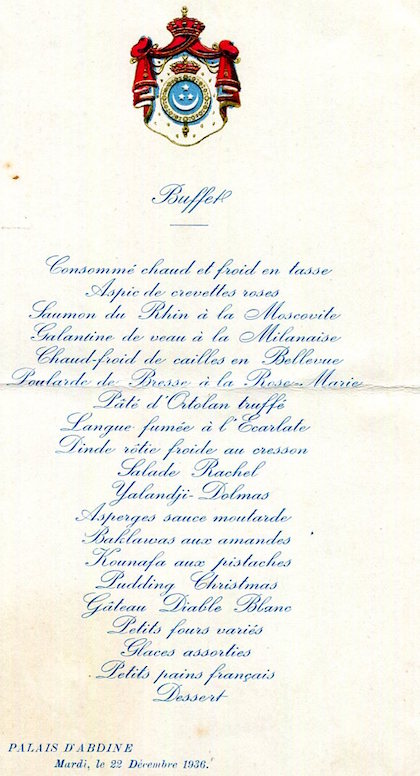 Buffet
Consommé chaud et froid en tasse
Aspic de crevettes roses
Saumon du Rhin à la Moscovite
Galantine de veau à la Milanaise
Chaud-froid de cailles en Bellevue
Poularde de Bresse à la Rose-Marie
Pâté d'Ortolan truffé
Langue fumée à l'Ecarlate
Dinde rôtie froide au cresson
Salade Rachel
Yalandji-Dolmas
Asperges sauce moutarde
Baklawas aux amandes
Kounafa aux pistaches
Pudding Christmas
Gâteau Diable Blanc
Petits fours variés
Glaces assorties
Petits pains français
Dessert
PALAIS D'ABDINE
Mardi, le 22 Décembre 1936.